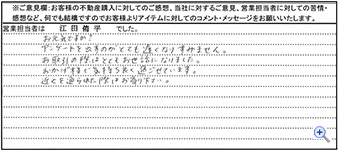 ※ご意見欄:お客様の不動産購入に対してのご感想、当社に対するご意見、営業担当者に対しての苦情・
感想など、何でも結構ですのでお客様よりアイテムに対してのコメント・メッセージをお願いいたします。
営業担当者は 江田 侑平 でした。
お元気ですか?
アンケートを出すのがとても遅くなりすみません。
お取引の際はとてもお世話になりました。
おかげさまで気持ち良く過ごせています。
近くを通られた際はお寄り下さい。